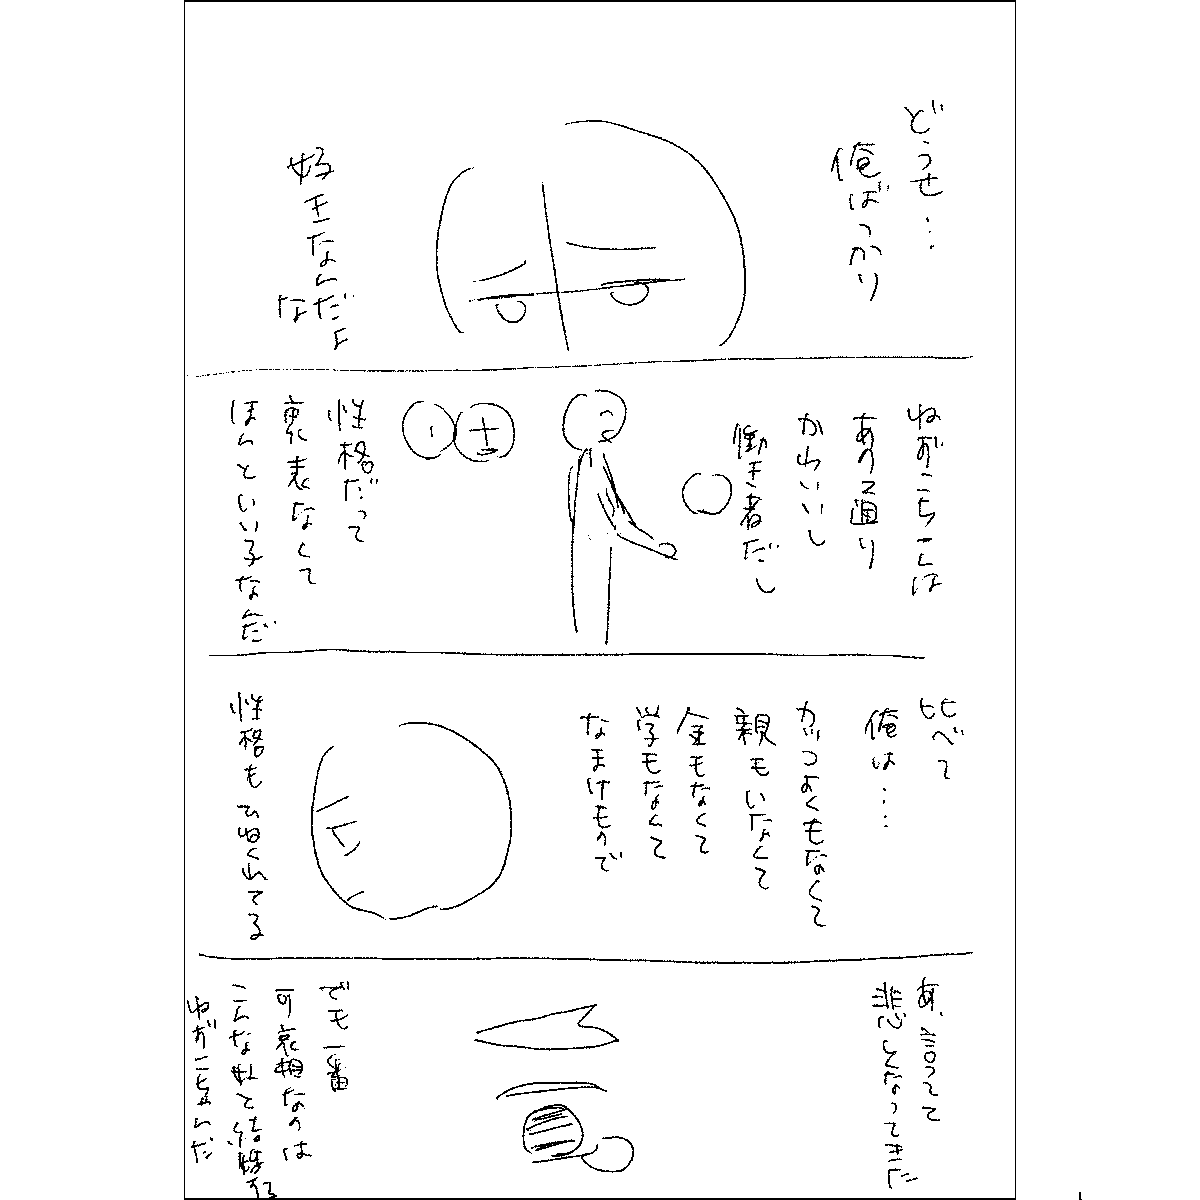 どうせ…
俺ばっかり
好王なんだよ
な
ねおこちゃんは
あの通り
かわいいし
働き者だし
性格だって
裏表なくて
ほんといい子なんだ
比べて
俺は……
かっこよくもなくて
親もいなくて
金もなくて
学もなくて
なまけもので
性格もひねくれてる
あ、言ってて
悲しくなってきた
でも一番
可哀想なのは
こんな奴と結婚する
ねおこちゃんだ